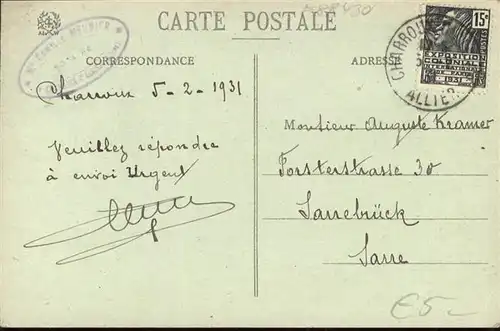 CARTE POSTALE
CORRESPONDANCE
ADRESSE
15c
POSTES
EXPOSITION
COLONIALE
INTERNATIONALE
DE PARIS
1931
CHARROUX
ALLIER
Charroux 5-2-1931
Veuillez répondre
à envoi Urgent
Monsieur Auguste Kramer
Forsterstrasse 30
Sarrebrück
Sarre
€5-